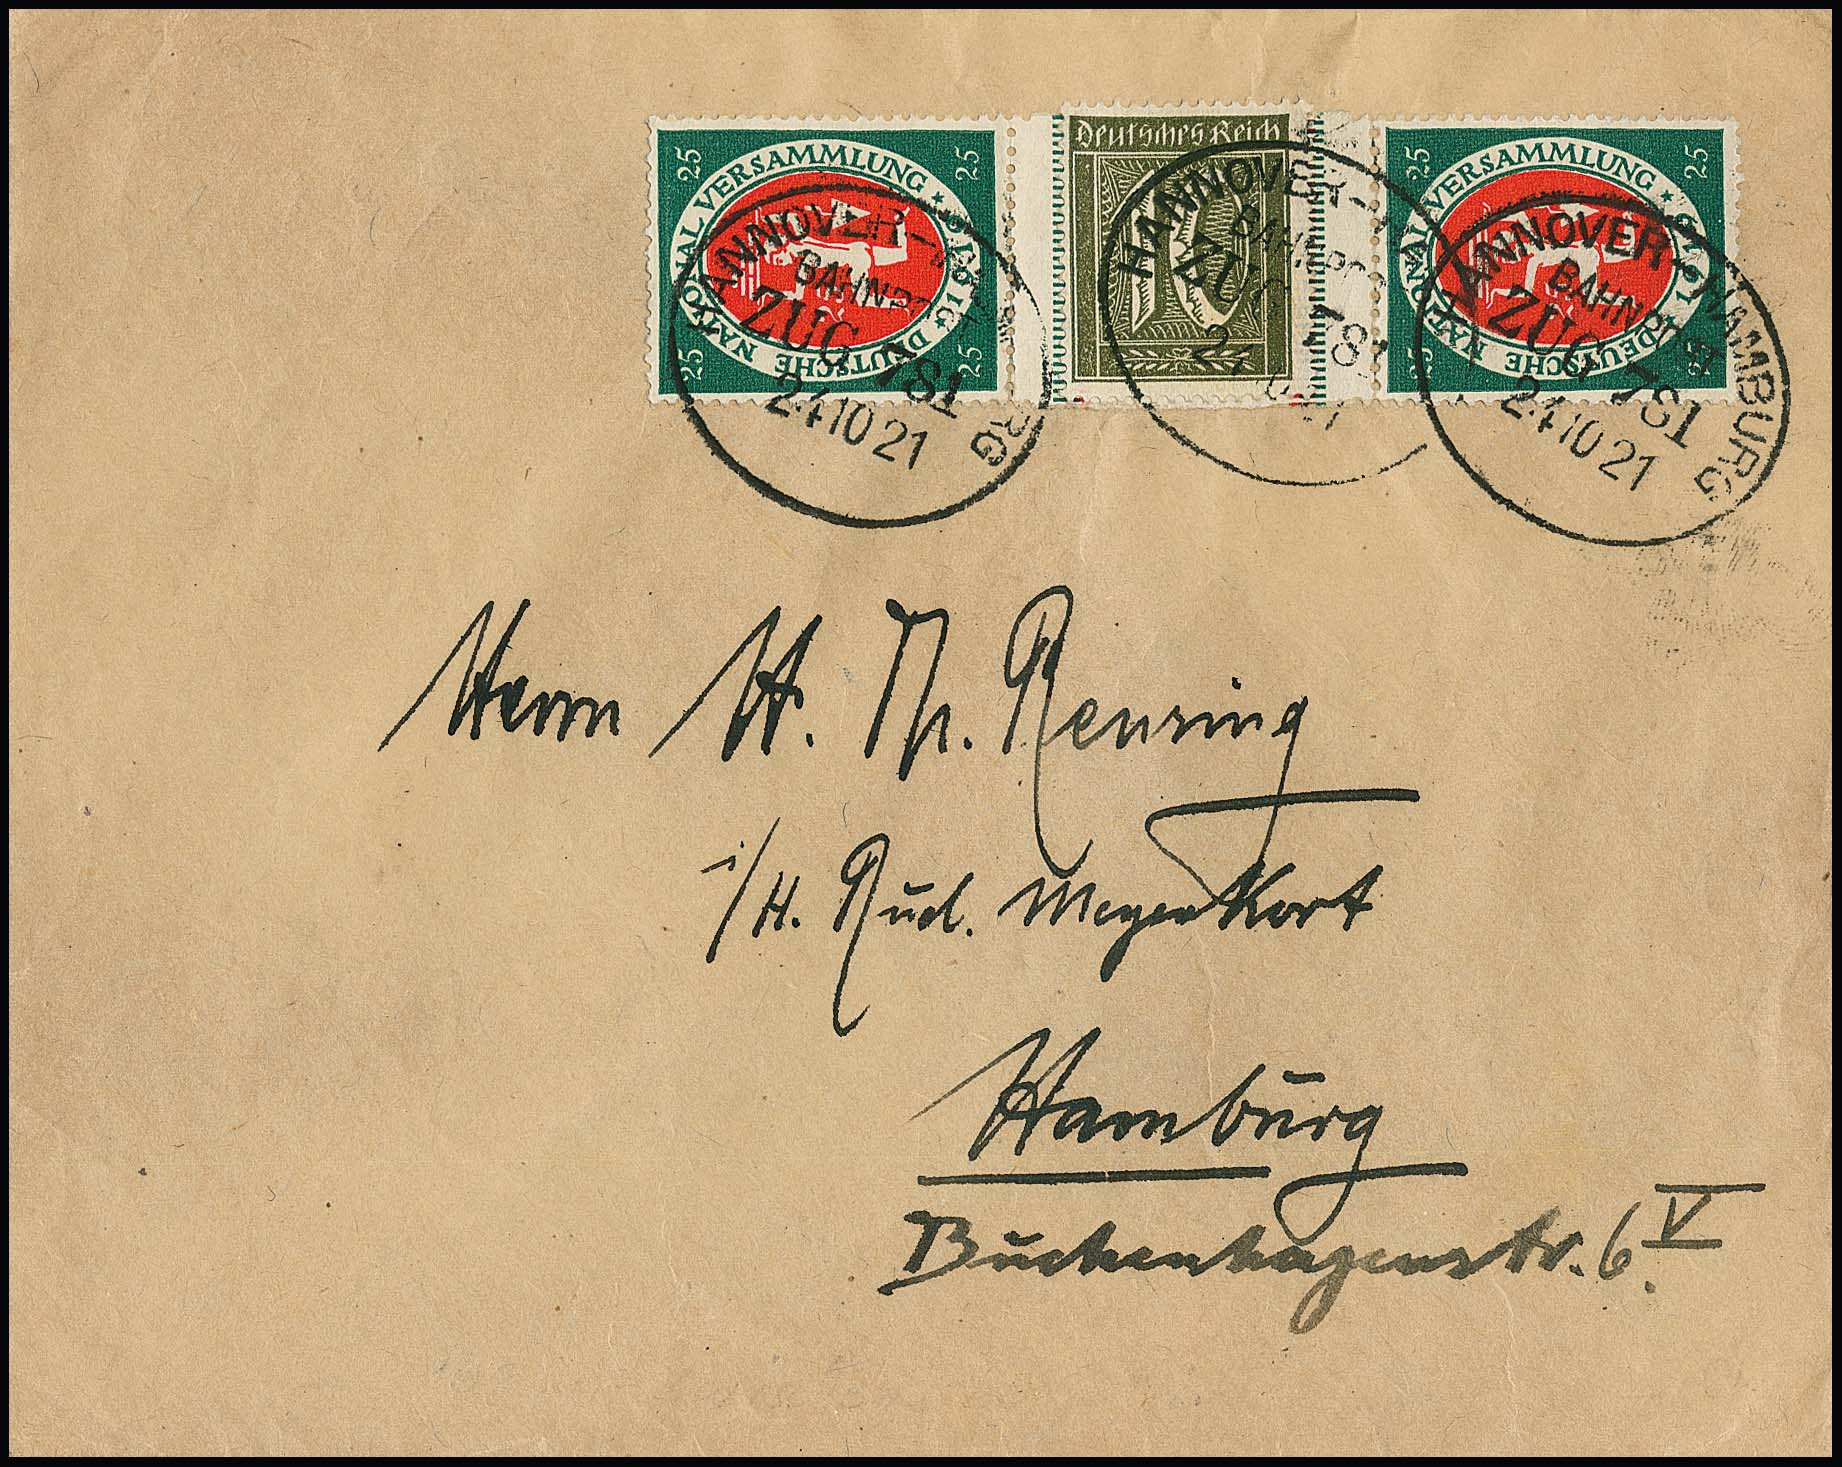 25 25
DEUTSCHE NATIONALVERSAMMLUNG * 1919 *
25 25
Deutsches Reich
10
25 25
DEUTSCHE NATIONALVERSAMMLUNG * 1919 *
25 25
HANNOVER-HAMBURG
BAHNPOST
ZUG 781
24 10 21
HANNOVER-
BAHNPOST
ZUG 781
24 10 21
HANNOVER-HAMBURG
BAHNPOST
ZUG 781
24 10 21
Herrn H. Th. Rensing
i/H. Rud. Meyerkort
Hamburg
Buchenhagenstr. 6 V.